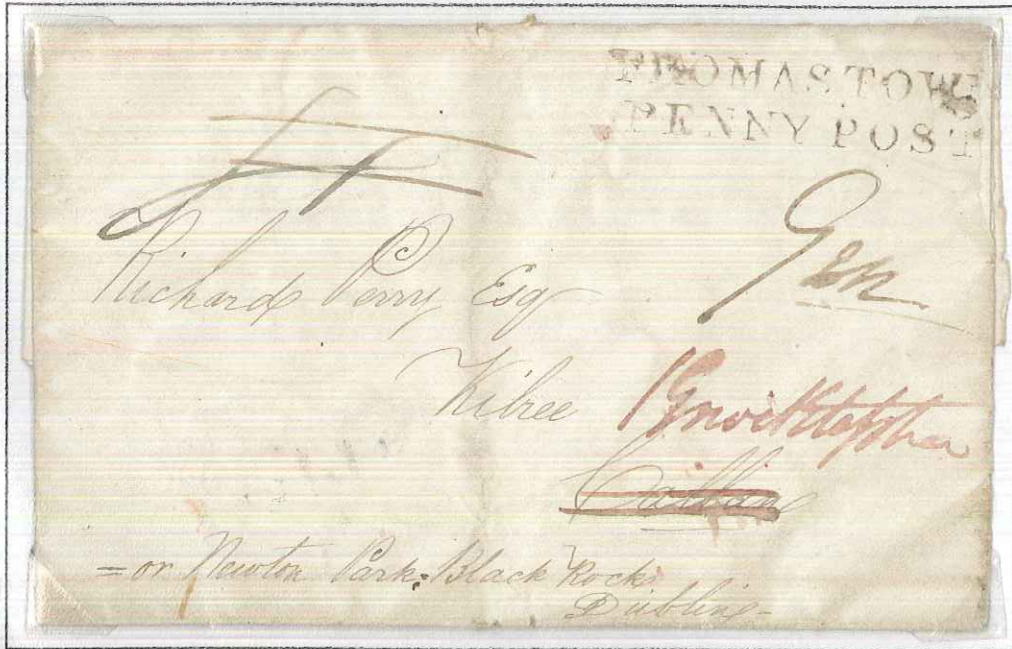 THOMASTOWN
PENNY POST
Richard Perry Esq
Kilree
Knocktopher
Callan
= or Newton Park, Black Rock
Dublin -